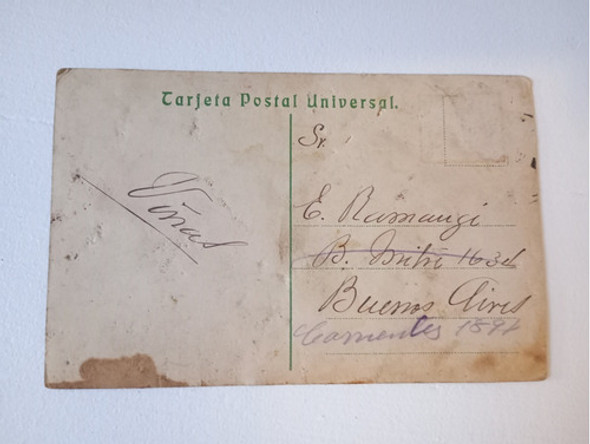 Tarjeta Postal Universal.
Viñas
Sr.
E. Ramaugé
B. Mitre 1634
Buenos Aires
Corrientes 1894